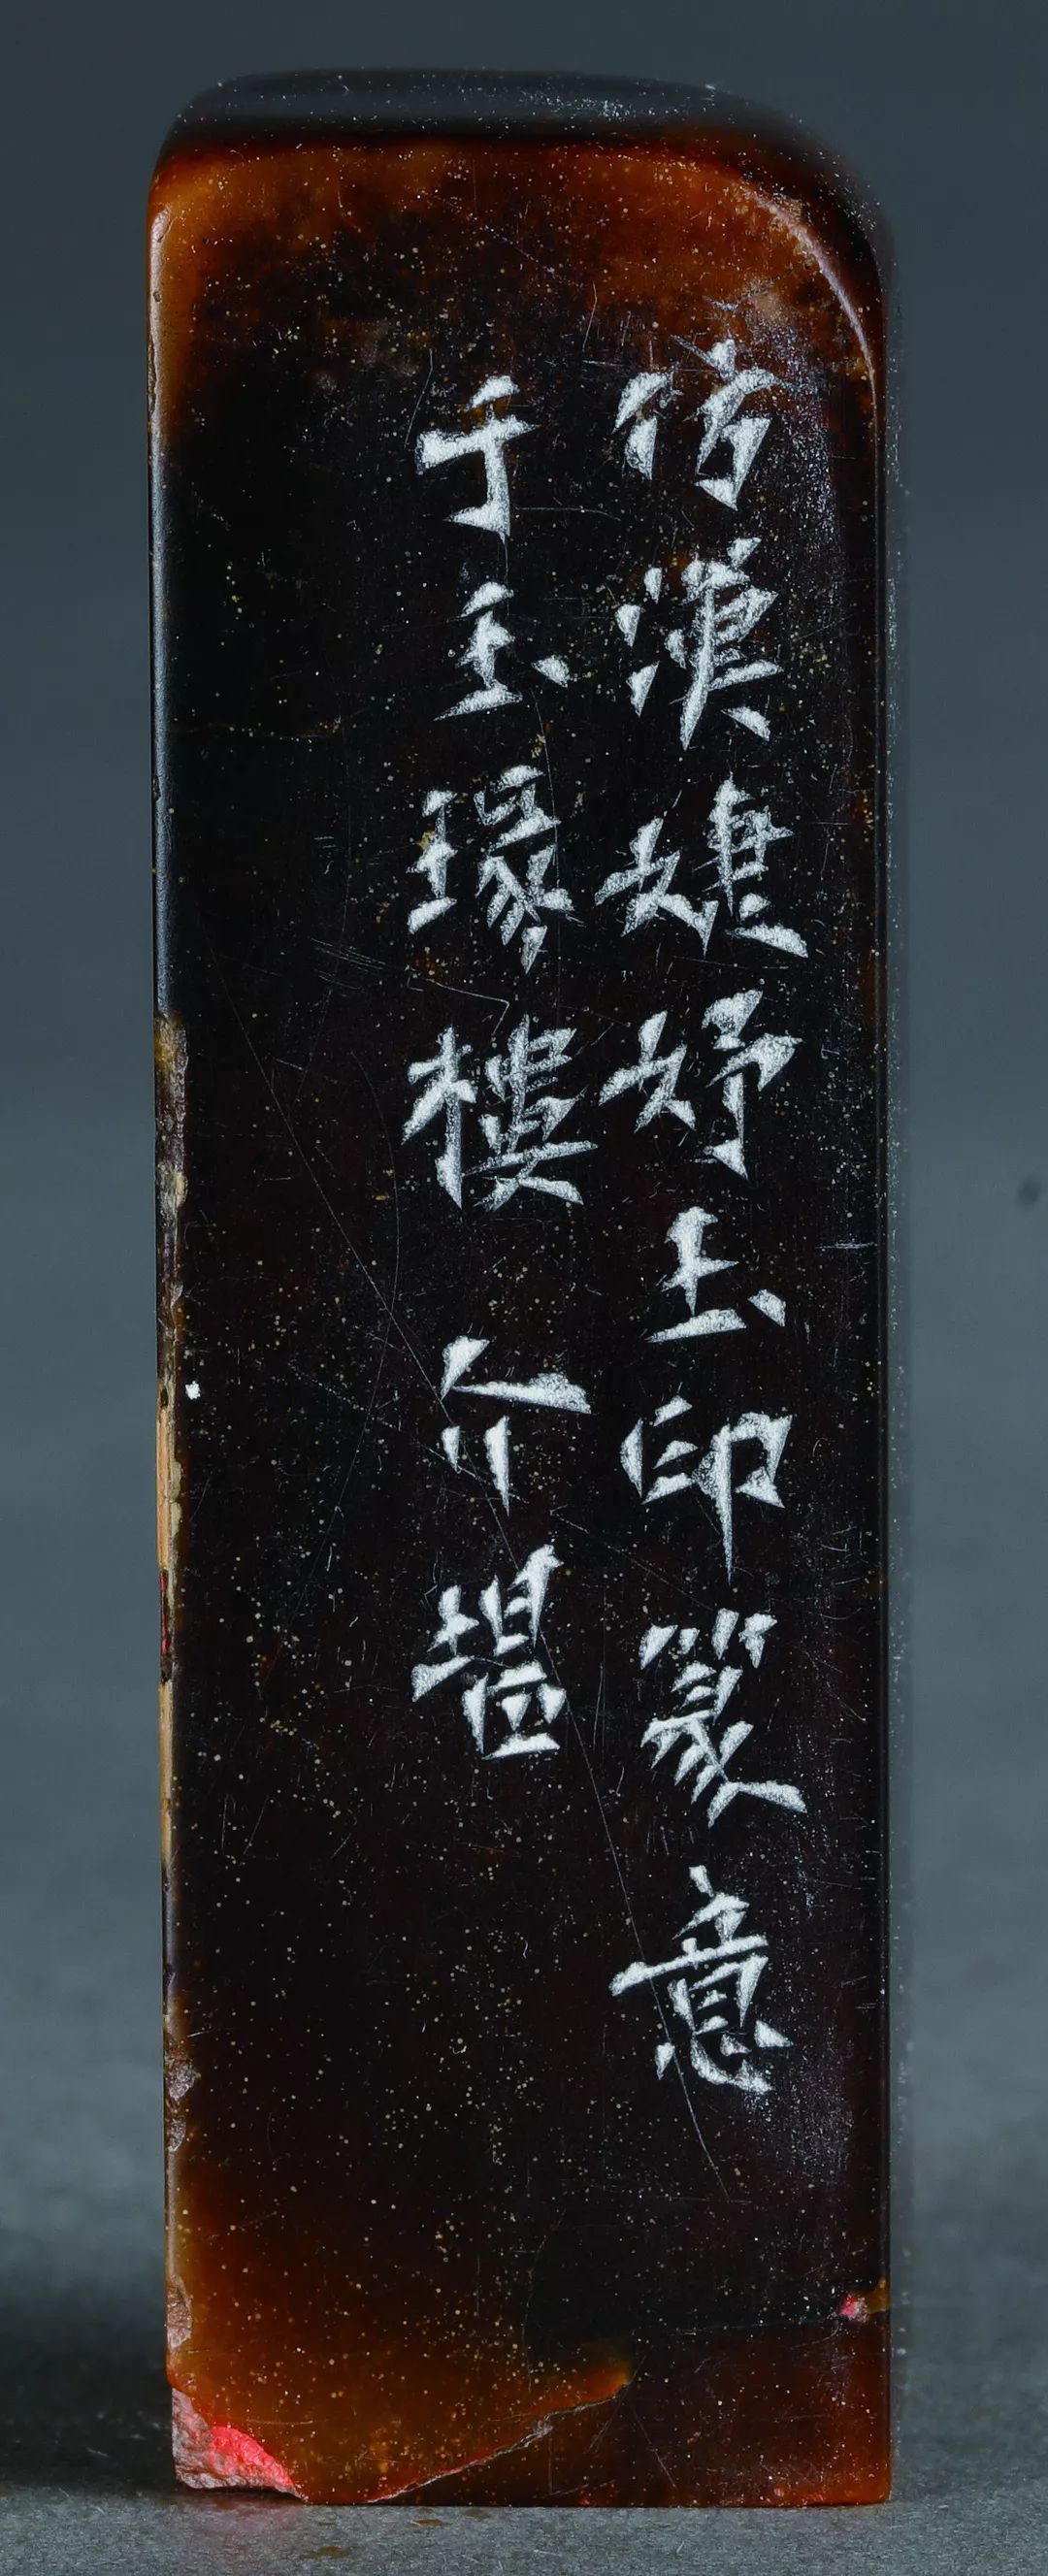 仿漢婕妤玉印篆意
于玉瑑樓介堪